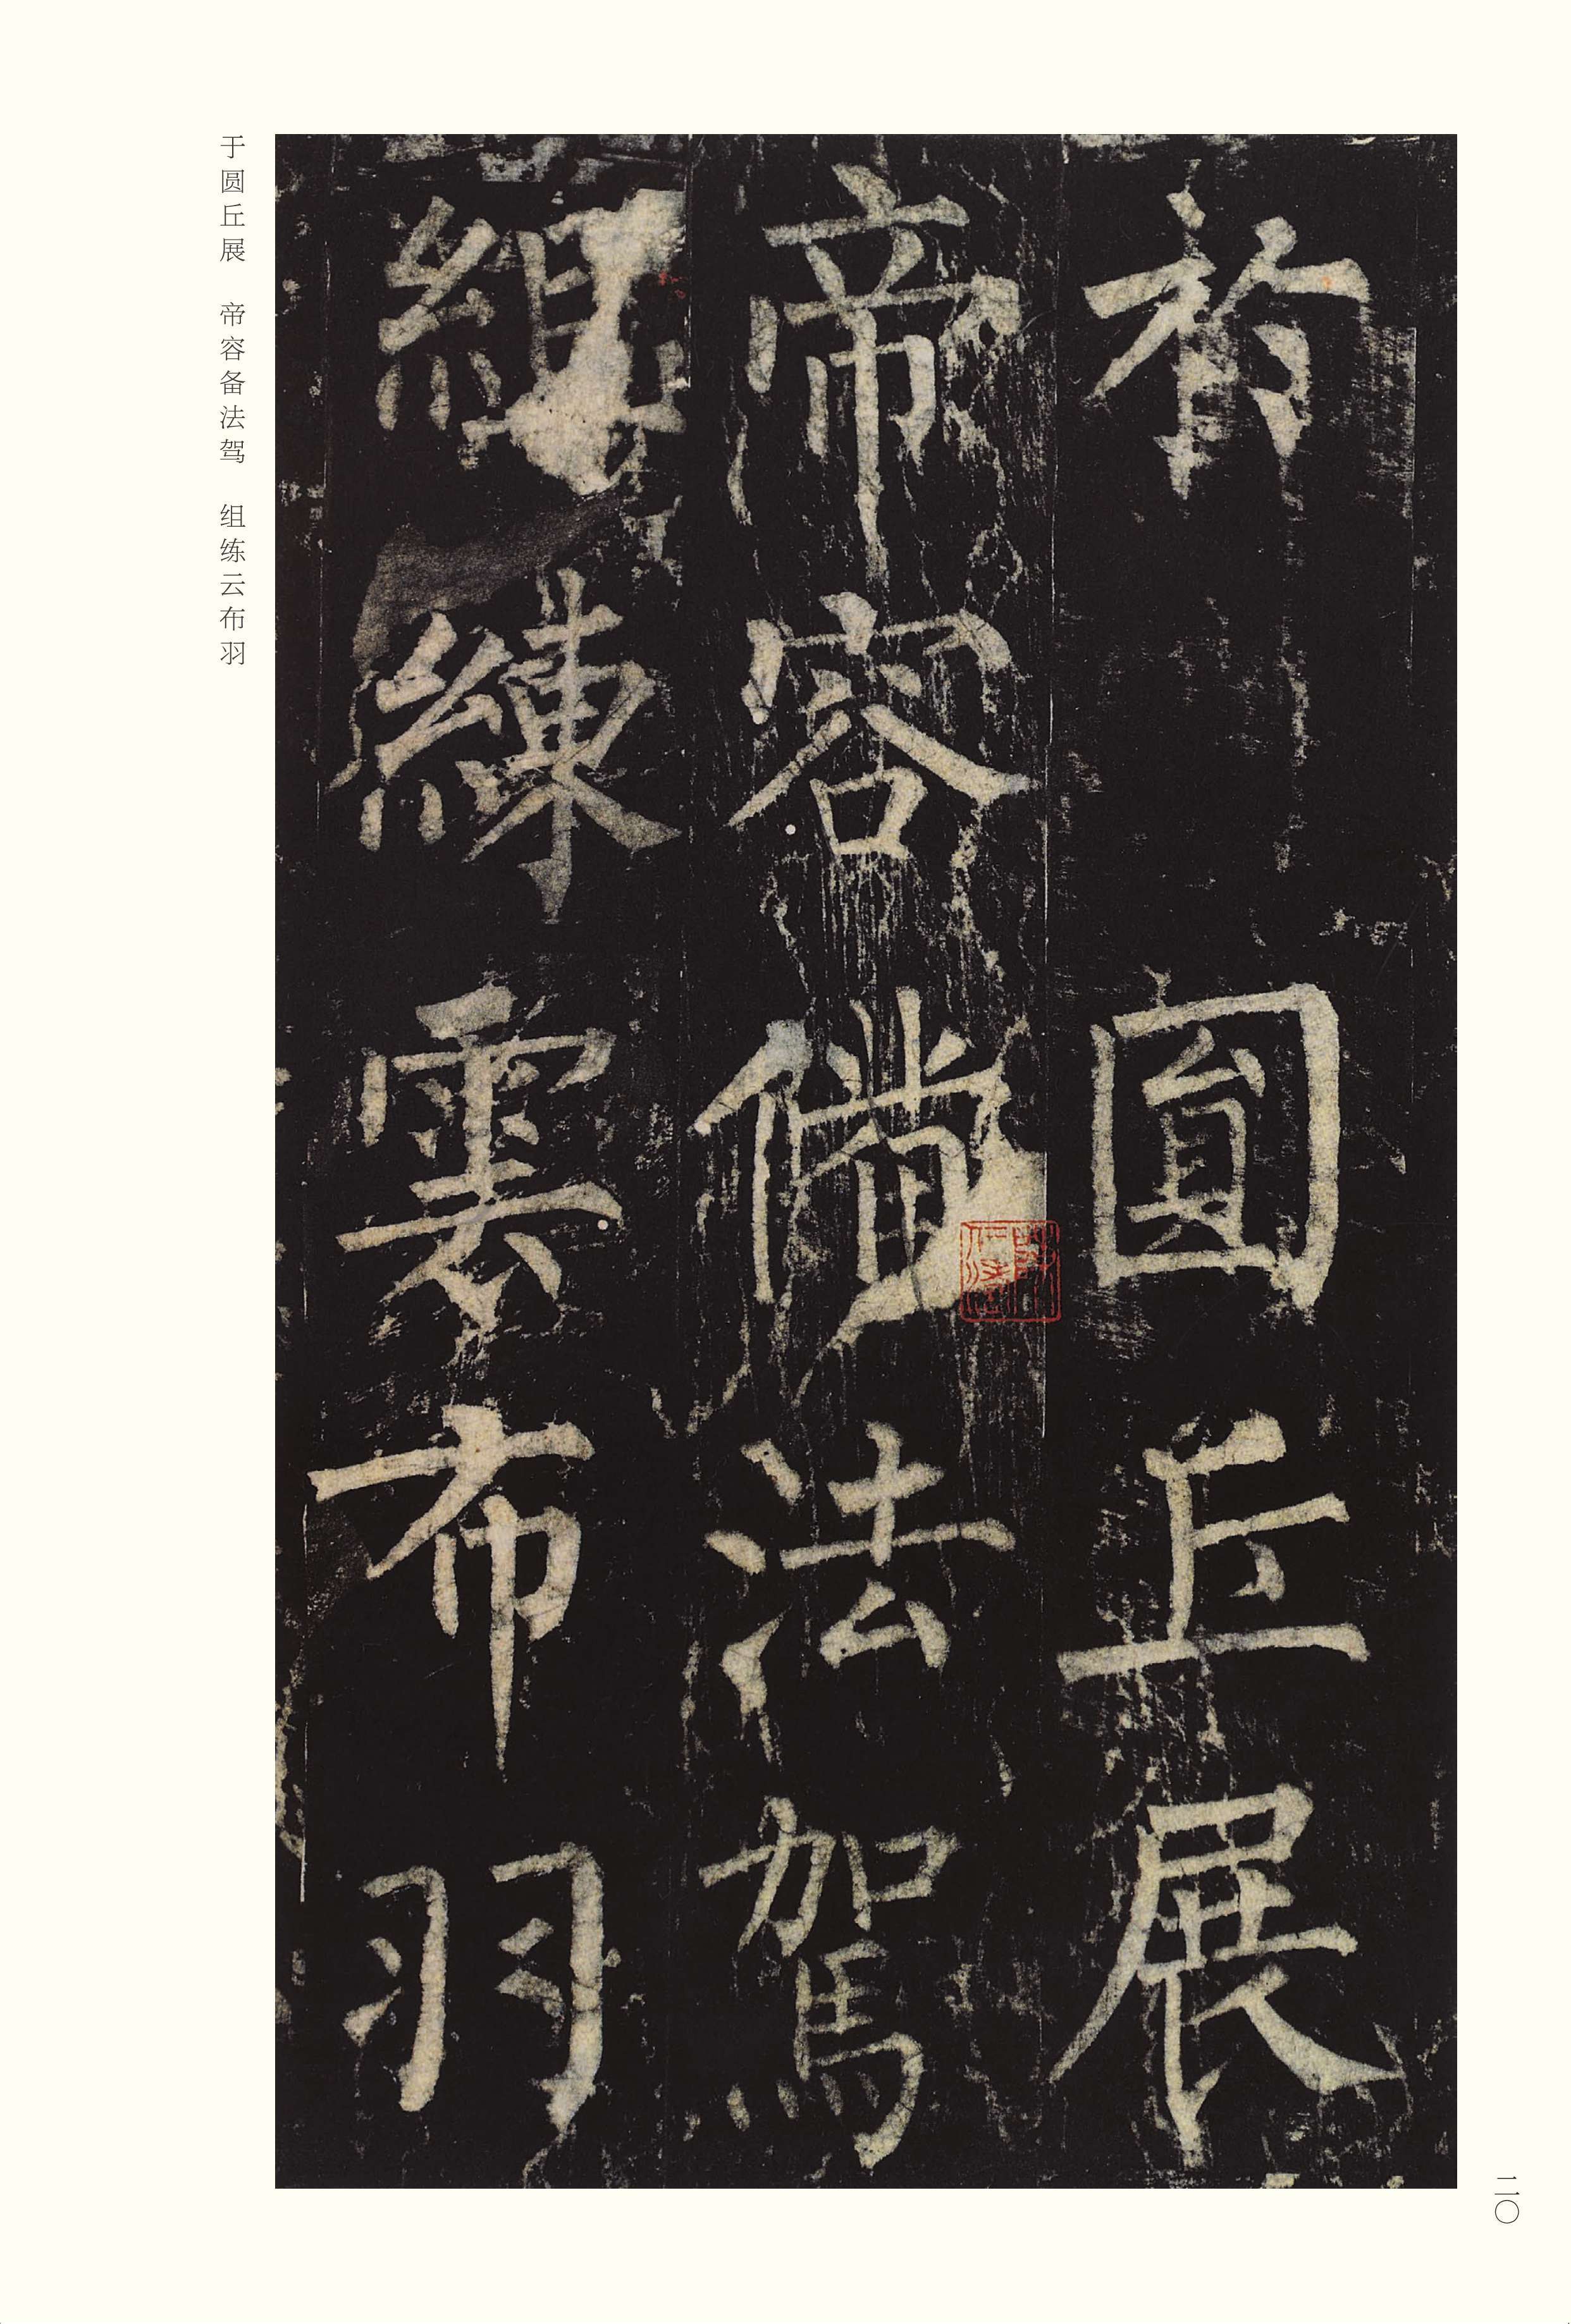 於圓丘展
帝容備法駕
組練雲布羽
于圆丘展　帝容备法驾　组练云布羽
二〇